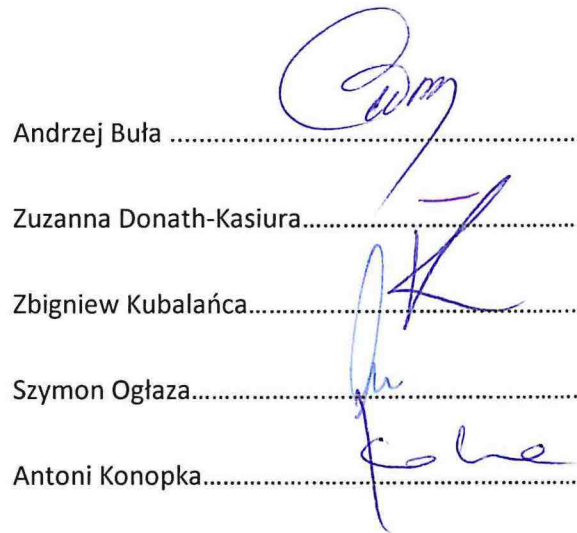 Andrzej Buła ..............................................................
Zuzanna Donath-Kasiura..........................................
Zbigniew Kubalańca...................................................
Szymon Ogłaza............................................................
Antoni Konopka..........................................................